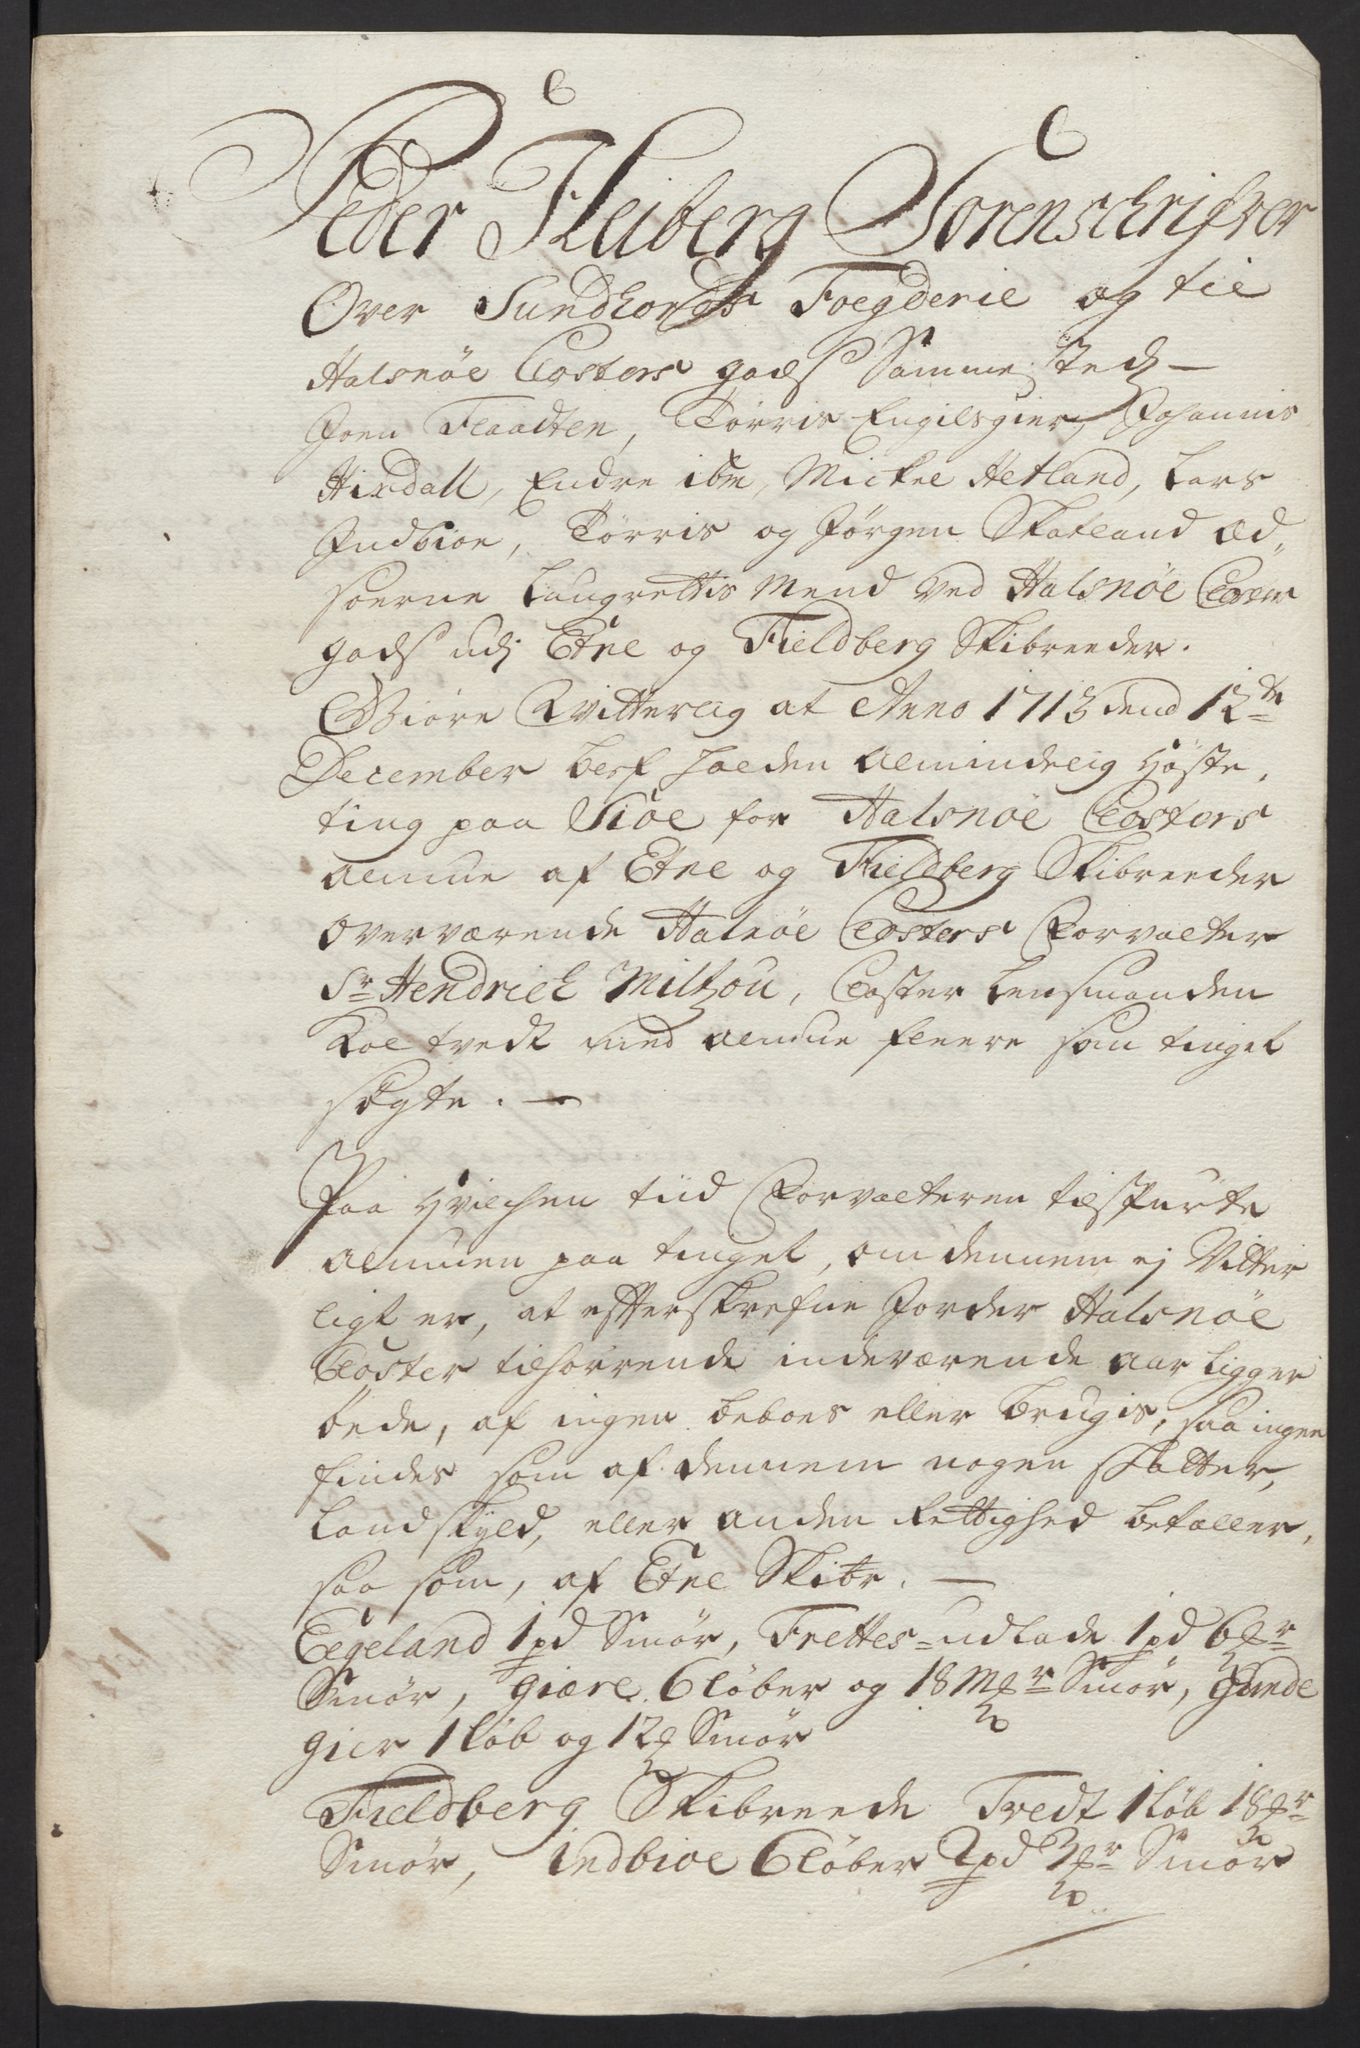 Peder Heiberg Sorenschrifver
Over Sundhords Foegderie og til
Halsnøe Closters godtz Sammestedz
Joen Flaadten, Tørris Engilsgier, Johannis
Hindall, Endre ibm, Mickel Hetland, Lars
Indbioe, Tørris og Jørgen Skatland Æd,
soerne Laugrettis Mend ved Halsnøe Closter
gods udj Etne og Fieldberg Skibreeder.
Giøre Vitterlig at Anno 1713 dend 12te
December blef holden Almindelig Høste,
ting paa Siøe for Halsnøe Closters
Almue af Etne og Fieldberg Skibreeder
Overværende Halsnøe Closters Forvalter
Sr Hendrich Miltzou, Closter Lensmanden
Koltvedt med Almue fleere som tinget
søgte. —
Paa hvilchen tiid Forvalteren tilspurte
Almuen paa tinget, om dennem ej Vitter
ligt er, at efterskrefne Jorder Halsnøe
Closter tilhørrende indeværende Aar ligger
øede, af ingen beboes eller brugis, saa ingen
findes som af dennem nogen Skatter,
Landskyld, eller anden Rettighed betaller,
saa som, af Etne Skibr. —
Egeland 1 pd Smør, Frettes-udlade 1 pd 6 mr
Smør, Giære 6 Løber og 18 Mr Smør, Grinde
gier 1 Løb og 12 Smør
Fieldberg Skibreede Tvedt 1 Løb 18 mr
Smør, Indbioe 6 Løber 2 pd 3 mr Smør